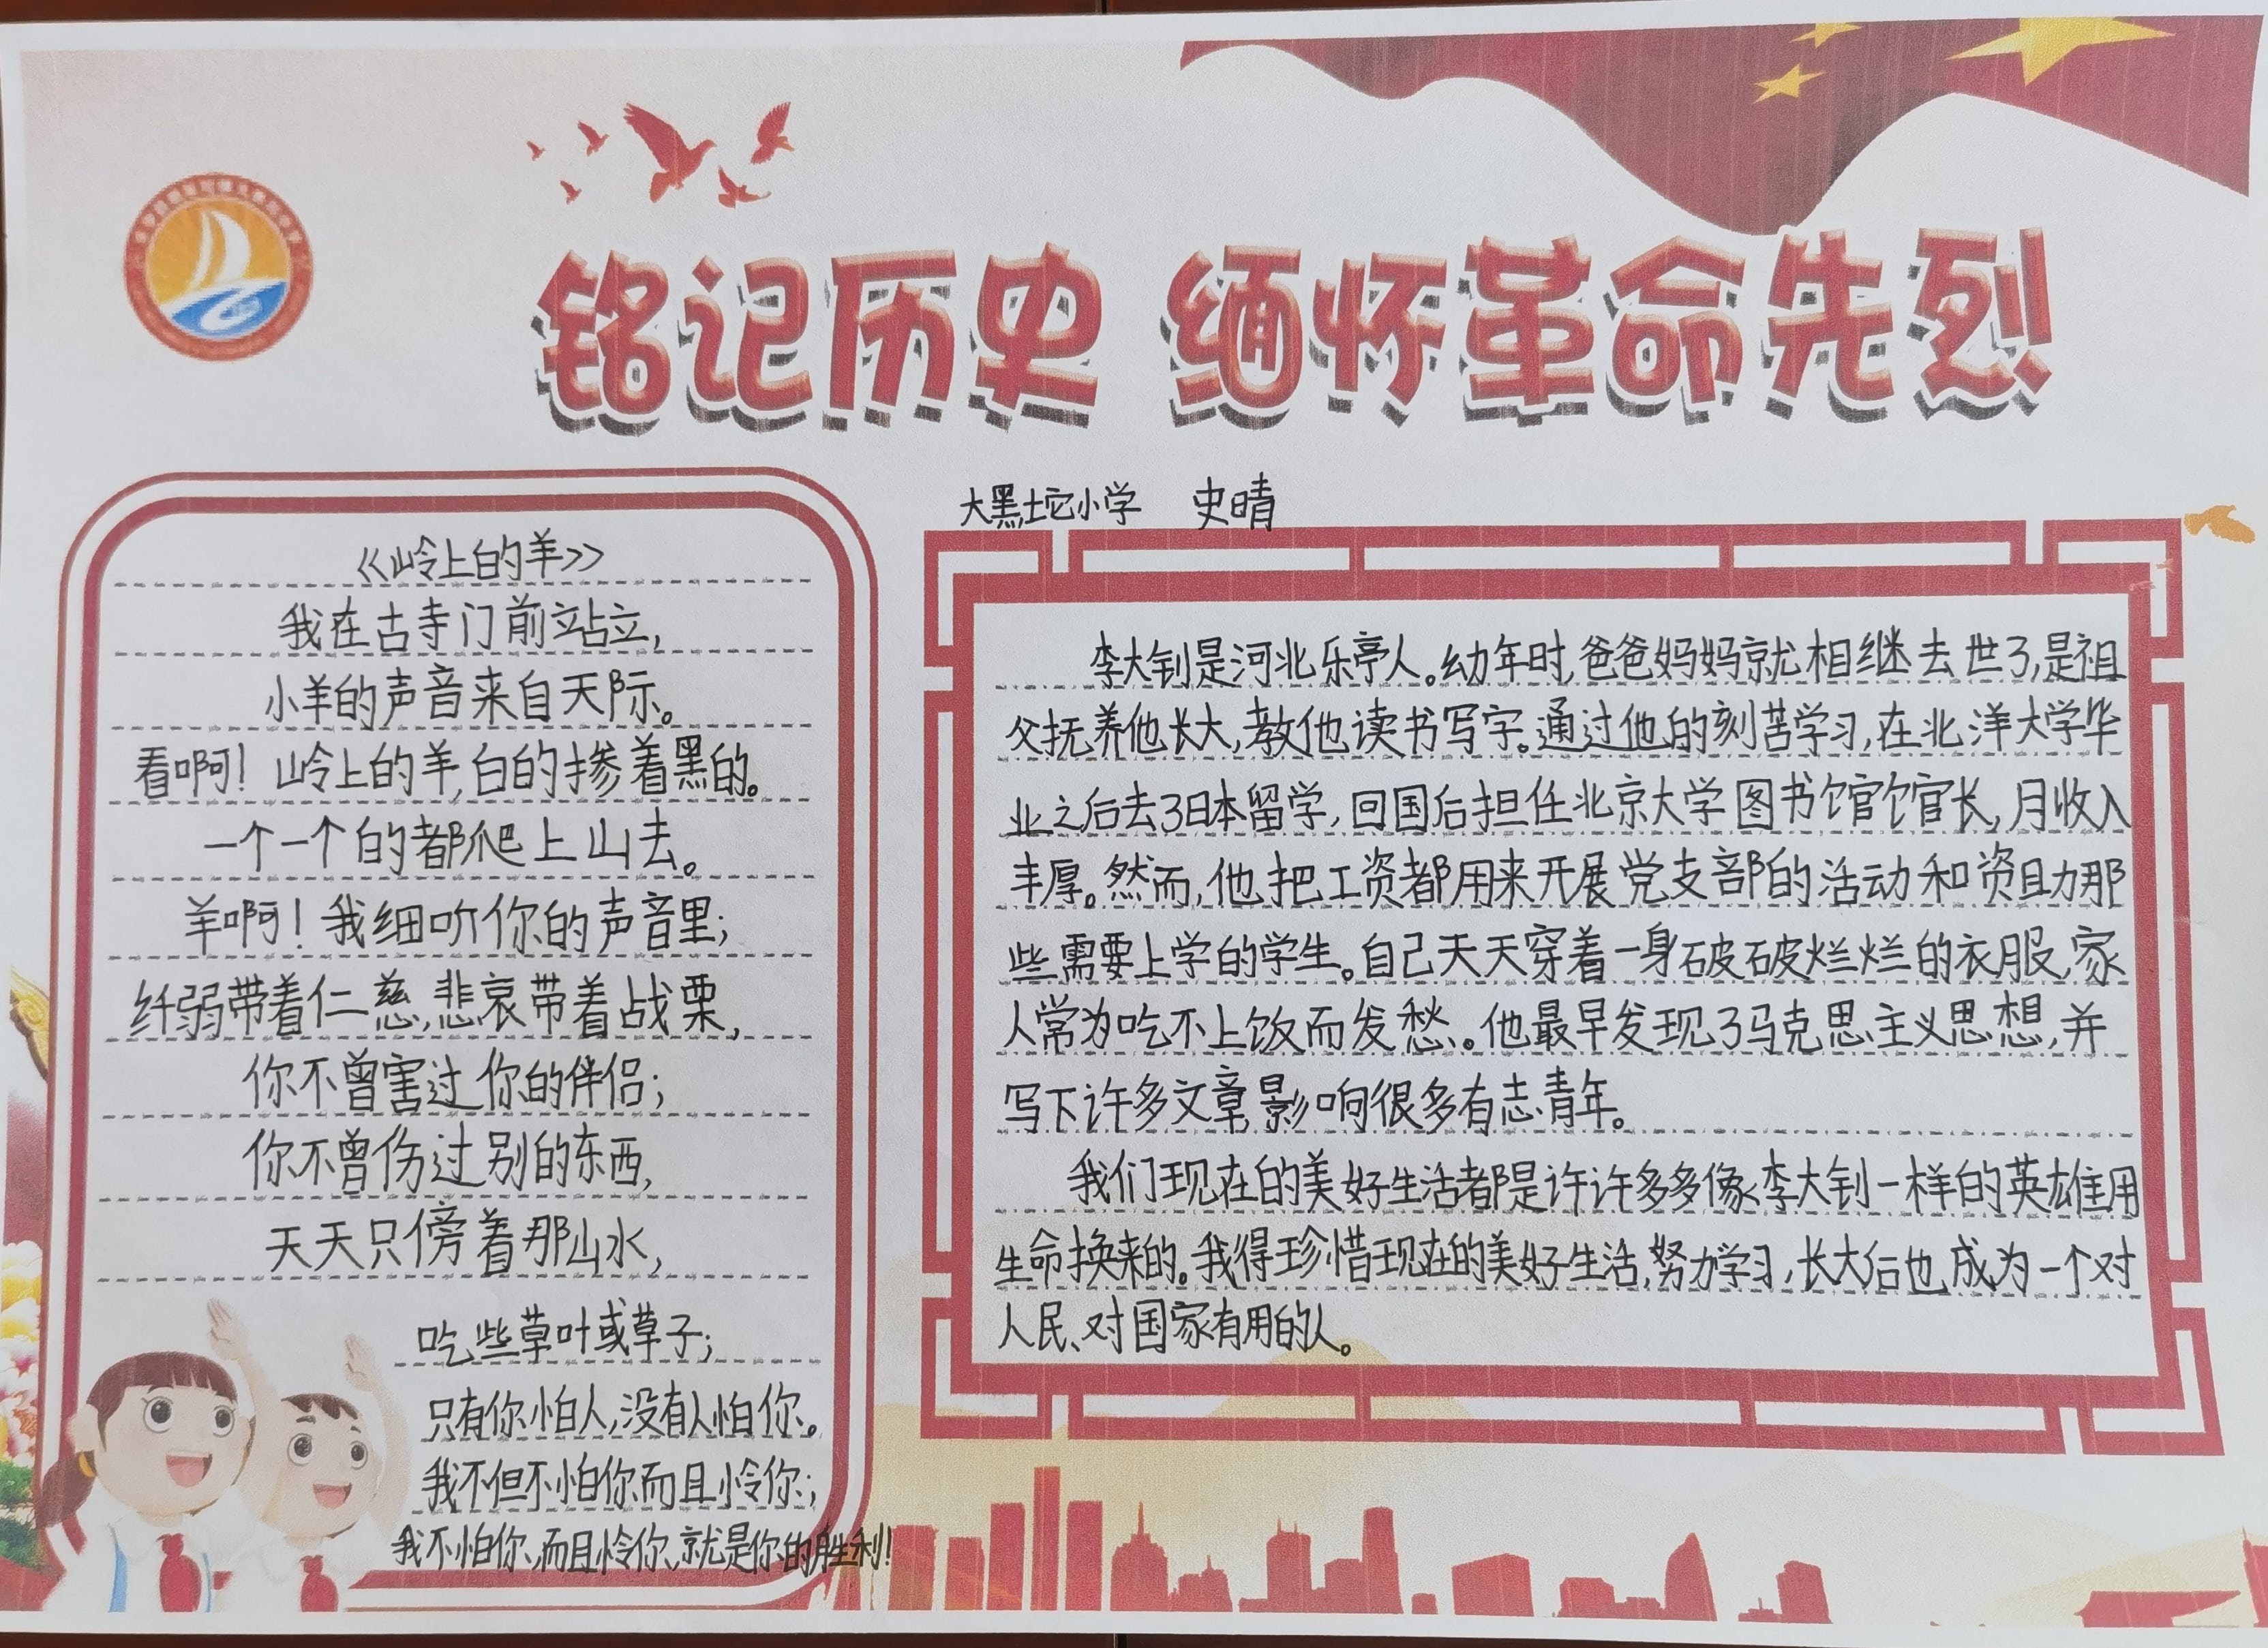 铭记历史 缅怀革命先烈
大黑坨小学 史晴
《山岭上的羊》
我在古寺门前站立,
小羊的声音来自天际。
看啊!山岭上的羊,白的掺着黑的。
一个一个的都爬上山去。
羊啊!我细听你的声音里;
纤弱带着仁慈,悲哀带着战栗,
你不曾害过你的伴侣;
你不曾伤过别的东西,
天天只傍着那山水,
吃些草叶或草子;
只有你怕人,没有人怕你。
我不但不怕你而且怜你;
我不怕你、而且怜你、就是你的胜利!
李大钊是河北乐亭人。幼年时,爸爸妈妈就相继去世了,是祖
父抚养他长大,教他读书写字。通过他的刻苦学习,在北洋大学毕
业之后去了日本留学,回国后担任北京大学图书馆馆长,月收入
丰厚。然而,他把工资都用来开展党支部的活动和资助那
些需要上学的学生。自己天天穿着一身破破烂烂的衣服,家
人常为吃不上饭而发愁。他最早发现了马克思主义思想,并
写下许多文章,影响很多有志青年。
我们现在的美好生活都是许许多多像李大钊一样的英雄用
生命换来的。我得珍惜现在的美好生活,努力学习,长大后也成为一个对
人民、对国家有用的人。